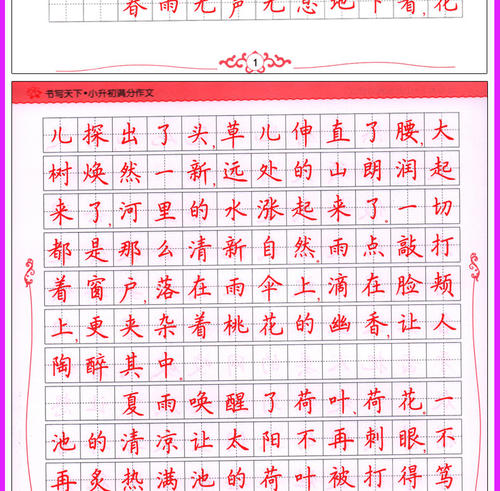 春雨无声无息地下着,花
1
书写天下•小升初满分作文
儿探出了头,草儿伸直了腰,大
树焕然一新,远处的山朗润起
来了,河里的水涨起来了。一切
都是那么清新自然。雨点敲打
着窗户,落在雨伞上,滴在脸颊
上,更夹杂着桃花的幽香,让人
陶醉其中。
夏雨唤醒了荷叶、荷花。一
池的清凉让太阳不再刺眼,不
再炙热满池的荷叶被打得笃